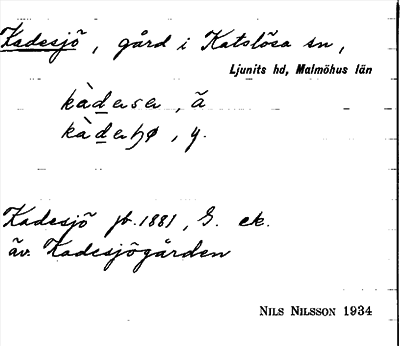 Kadesjö, gård i Katslösa sn,
Ljunits hd, Malmöhus län
kàdese, ä
kàdeɧø, y.
Kadesjö jb. 1881, G. ek.
äv. Kadesjögården
NILS NILSSON 1934